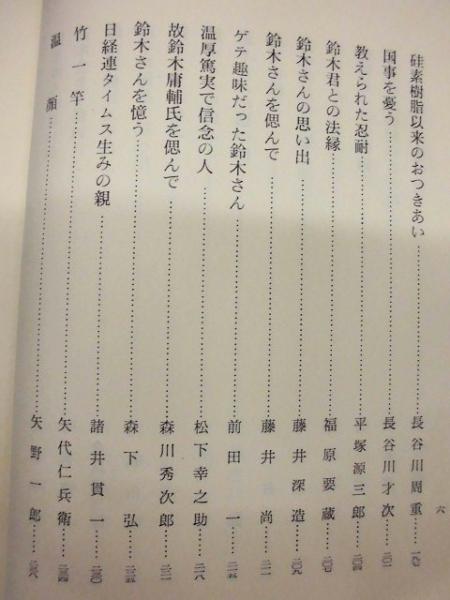 六
硅素樹脂以来のおつきあい……長谷川周重……
国事を憂う……長谷川才次……二〇一
教えられた忍耐……平塚源三郎……二〇四
鈴木君との法縁……福原要蔵……二〇七
鈴木さんの思い出……藤井深造……二〇九
鈴木さんを偲んで……藤井尚……
ゲテ趣味だった鈴木さん……前田一……二一五
温厚篤実で信念の人……松下幸之助……二一八
故鈴木庸輔氏を偲んで……森川秀次郎……
鈴木さんを憶う……森下弘……
日経連タイムス生みの親……諸井貫一……二三〇
竹一竿……矢代仁兵衛……
温顔……矢野一郎……